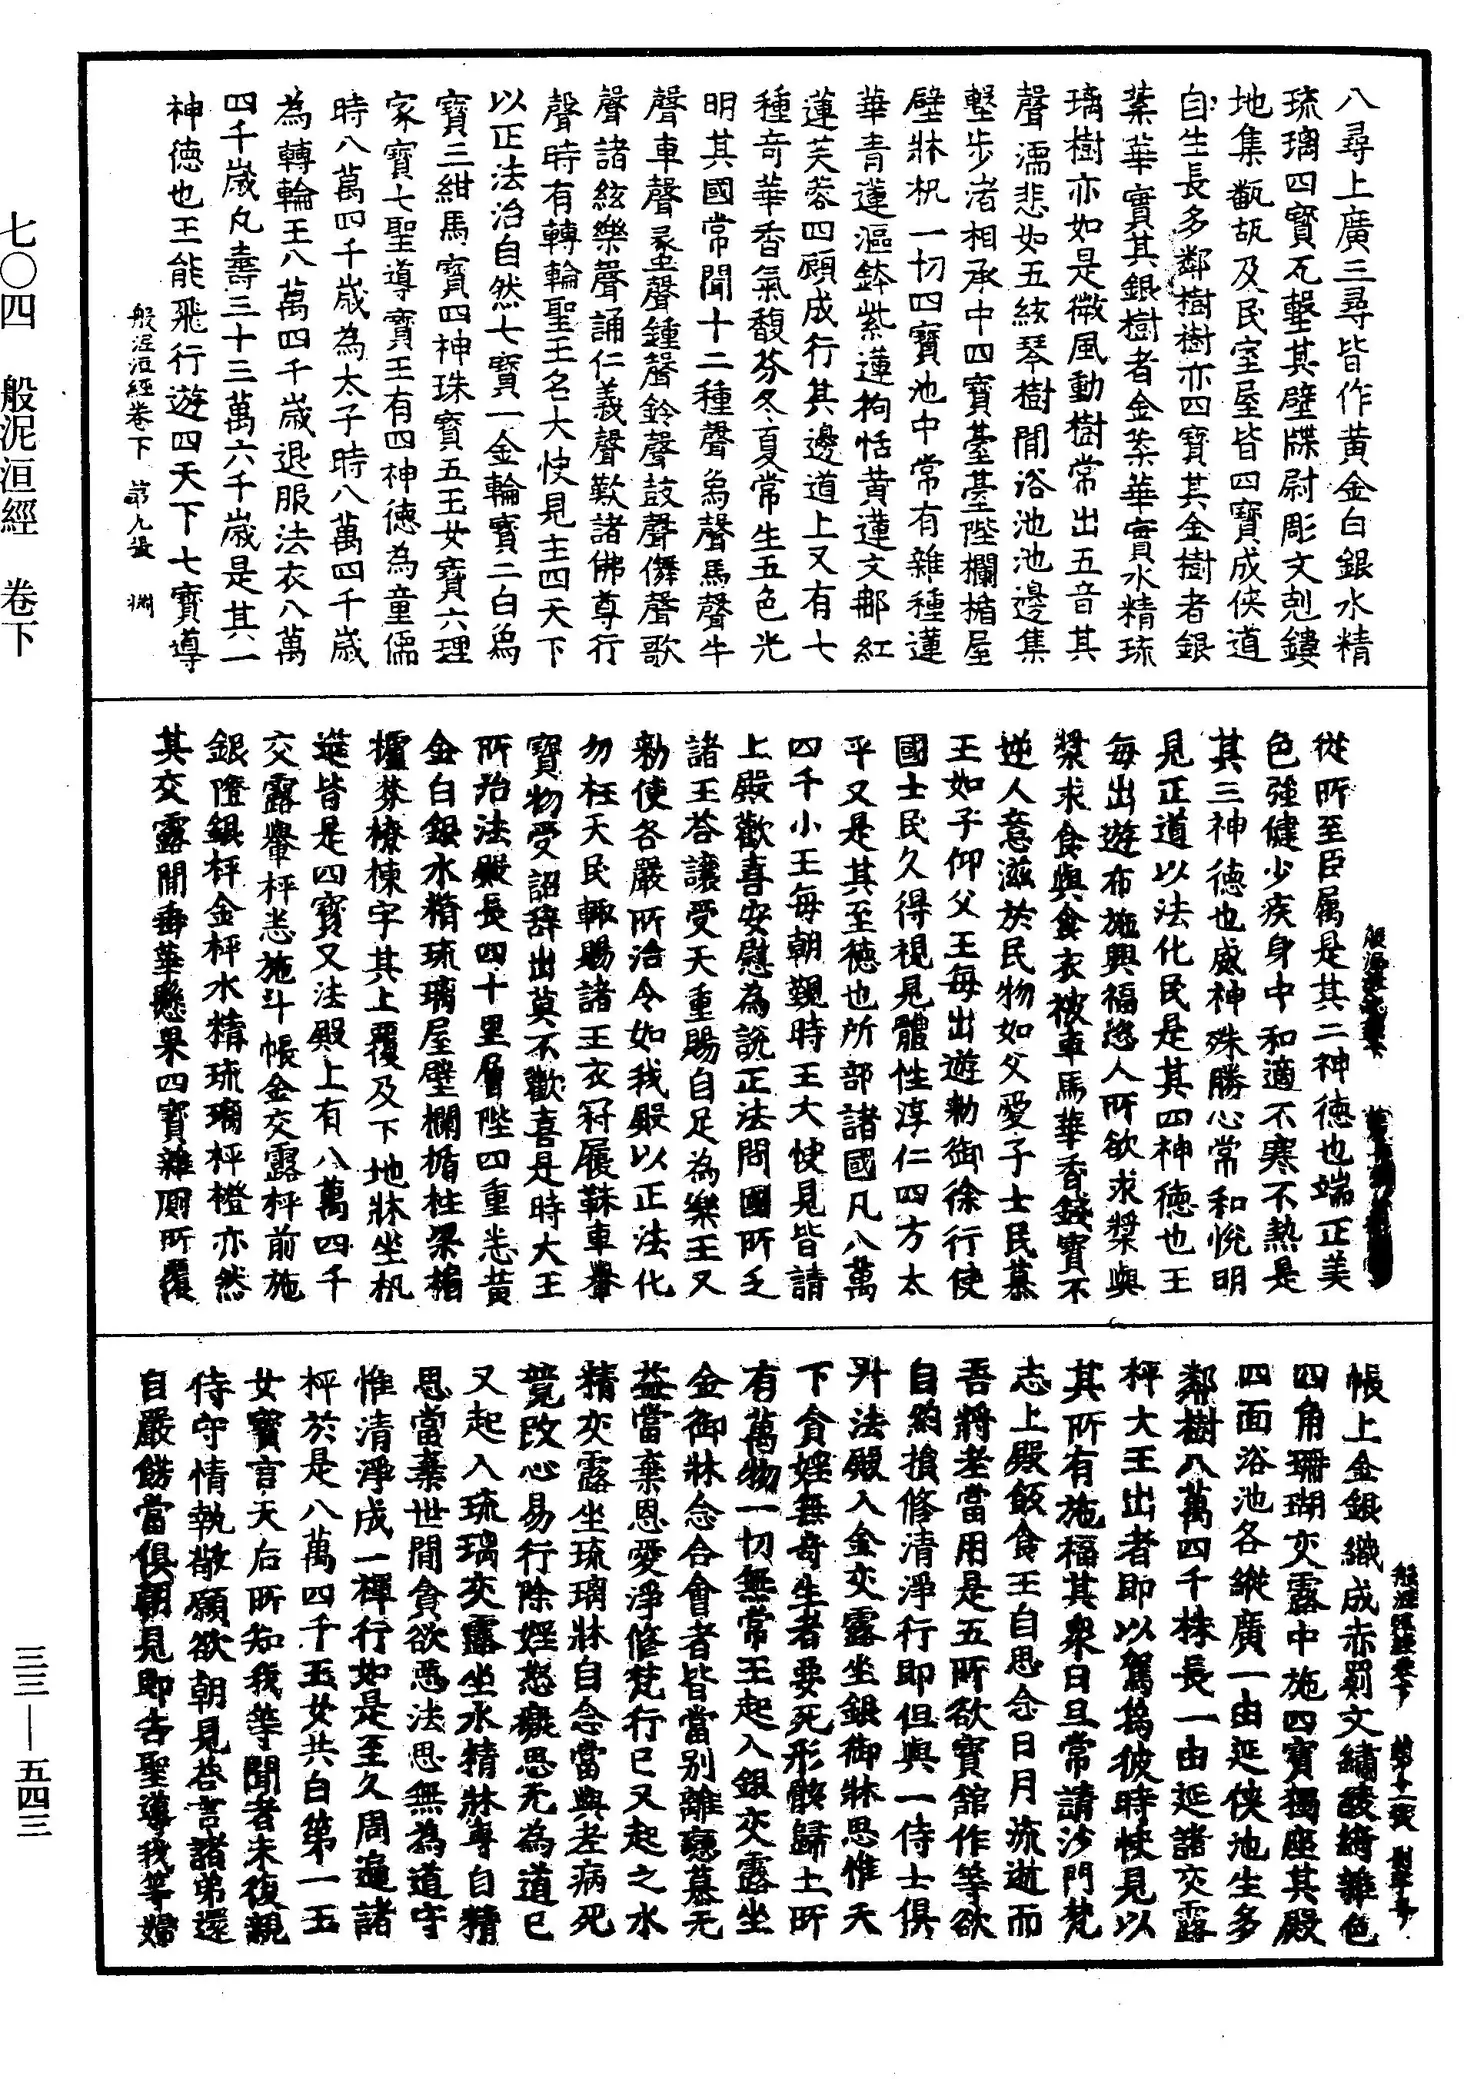 八尋上廣三尋皆作黃金白銀水精
琉璃四寶瓦墼其壁牒尉彫文剋鏤
地集㽄瓳及民室屋皆四寶成俠道
自生長多鄰樹樹亦四寶其金樹者銀
葉華實其銀樹者金葉華實水精琉
璃樹亦如是微風動樹常出五音其
聲濡悲如五絃琴樹間浴池池邊集
墼步渚相承中四寶臺臺陛欄楯屋
壁牀机一切四寶池中常有雜種蓮
華青蓮漚鉢紫蓮拘恬黃蓮文那紅
蓮芙蓉四顧成行其邊道上又有七
種奇華香氣馥芬冬夏常生五色光
明其國常聞十二種聲象聲馬聲牛
聲車聲螺聲鍾聲鈴聲鼓聲儛聲歌
聲諸絃樂聲誦仁義聲歎諸佛尊行
聲時有轉輪聖王名大快見主四天下
以正法治自然七寶一金輪寶二白象
寶三紺馬寶四神珠寶五玉女寶六理
家寶七聖導寶王有四神德為童儒
時八萬四千歲為太子時八萬四千歲
為轉輪王八萬四千歲退服法衣八萬
四千歲凡壽三十三萬六千歲是其一
神德也王能飛行遊四天下七寶導
般泥洹經卷下 第九張 淵
從所至臣屬是其二神德也端正美
色強健少疾身中和適不寒不熱是
其三神德也威神殊勝心常和悅明
見正道以法化民是其四神德也王
每出遊布施興福恣人所欲求漿與
漿求食與食衣被車馬華香錢寶不
逆人意滋於民物如父愛子士民慕
王如子仰父王每出遊勑御徐行使
國士民久得視見體性淳仁四方太
平又是其至德也所部諸國凡八萬
四千小王每朝覲時王大快見皆請
上殿歡喜安慰為說正法問國所乏
諸王荅讓受天重賜自足為樂王又
勑使各嚴所治令如我殿以正法化
勿枉天民輙賜諸王衣冠履韈車轝
寶物受詔辭出莫不歡喜是時大王
所治法殿長四十里層陛四重悉黃
金白銀水精琉璃屋壁欄楯柱梁榰
櫨棼橑棟宇其上覆及下地牀坐机
筵皆是四寶又法殿上有八萬四千
交露轝枰悉施斗帳金交露枰前施
銀隥銀枰金枰水精琉璃枰橙亦然
其交露間垂華懸果四寶雜廁所覆
帳上金銀織成赤罽文繡綾綺雜色
四角珊瑚交露中施四寶獨座其殿
四面浴池各縱廣一由延俠池生多
鄰樹八萬四千株長一由延諸交露
枰大王出者即以駕象彼時快見以
其所有施福其衆日旦常請沙門梵
志上殿飯食王自思念日月流逝而
吾將老當用是五所欲寶館作等欲
自約損修清淨行即但與一侍士俱
升法殿入金交露坐銀御牀思惟天
下貪婬無奇生者要死形骸歸土所
有萬物一切無常王起入銀交露坐
金御牀念合會者皆當別離戀慕无
益當棄恩愛淨修梵行已又起之水
精交露坐琉璃牀自念當與老病死
競改心易行除婬怒癡思无為道已
又起入琉璃交露坐水精牀專自精
思當棄世間貪欲惡法思無為道守
惟清淨成一禪行如是至久周遍諸
枰於是八萬四千玉女共白第一玉
女寶言天右所知我等聞者未復親
侍守情執敬願欲朝見荅言諸弟還
自嚴餝當俱朝見即告聖導我等婦
七〇四 般泥洹經 卷下
三三—五四三